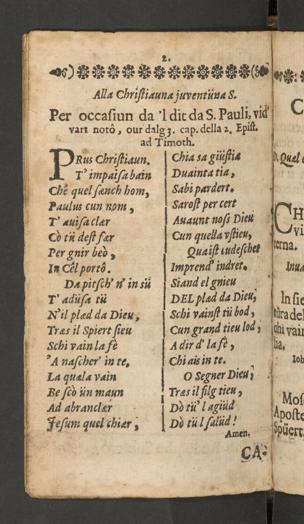 2.
Alla Chriſtiauna juventüna S.
Per occaſiun da 'l dit da S. Pauli, vid'
vart notô, our dalg 3. cap. della 2. Epiſt.
ad Timoth.
PRus Chriſtiaun.
T' impaiſa bain
Chê quel ſænch hom,
Paulus cun nom,
T' auiſa clær
Cò tü deſt fær
Per gnir beò,
In Cêl portô.
Da pitſch' n' in sü
T' adüſa tü
N'il plæd da Dieu,
Træs il Spiert ſieu
Schi vain la fê
'A naſcher' in te,
La quæla vain
Be ſcò ün maun
Ad abranclær
Jeſum quel chiær,
Chia ſa güiſtia
Duainta tia,
Sabi pardert.
Saroſt per cert
Auaunt noſs Dieu
Cun quella vſtieu,
Quaiſt cudeſchet
Imprend' indret.
Siand el gnieu
DEL plæd da Dieu,
Schi vainſt tü bod,
Cun grand tieu lod,
A dir d' la fê,
Chi ais in te.
O Segner Dieu,
Træs il filg tieu,
Dò tü' l agiüd
Dò tü l ſalüd!
Amen.
CA-